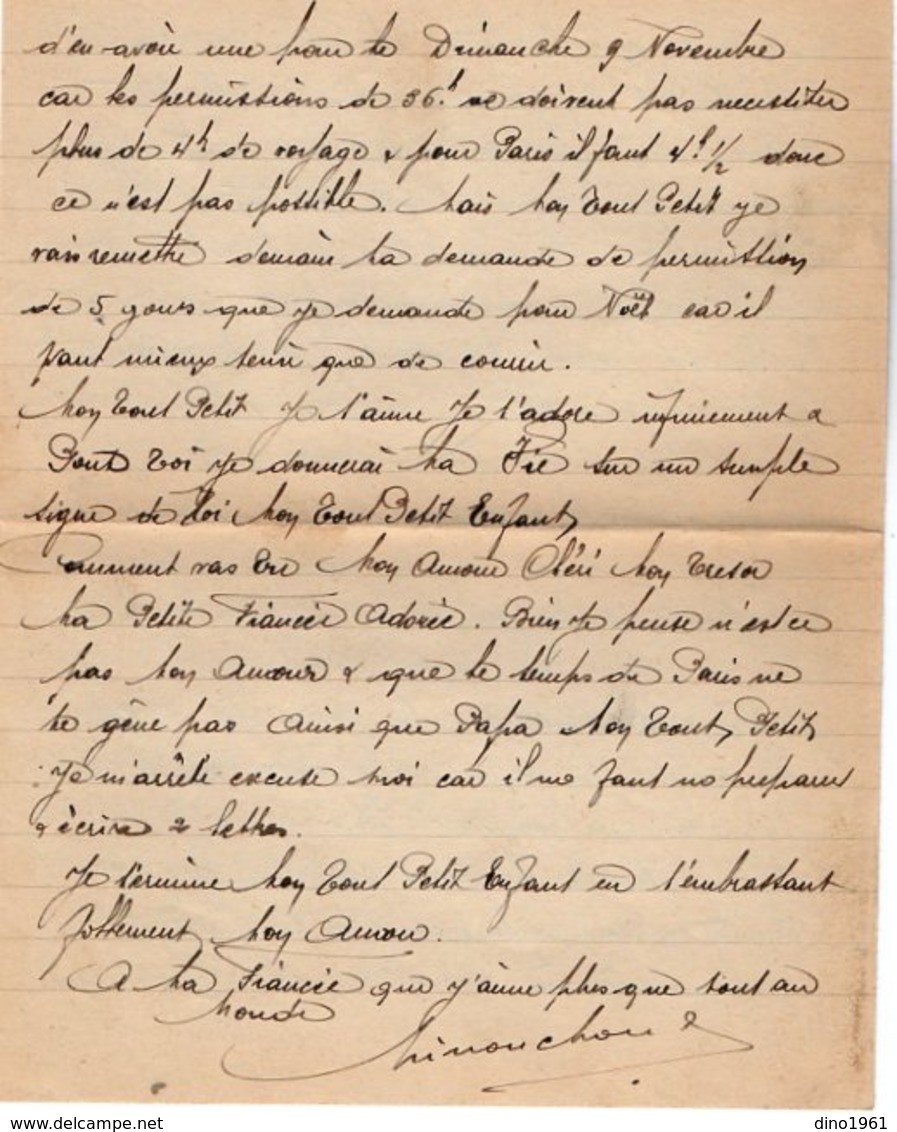 d'en avoir une pour le Dimanche 9 Novembre
car les permissions de 36h ne doivent pas necessiter
plus de 4h de voyage & pour Paris il faut 4h 1/2 donc
ce n'est pas possible. Mais Mon Tout Petit je
vais remettre demain ma demande de permission
de 5 jours que je demande pour Noël car il
vaut mieux tenir que de courir.
Mon Tout Petit Je t'aime Je t'adore infiniement &
Pour Toi je donnerai Ma Vie sur un simple
signe de Toi Mon Tout Petit Enfant
Comment vas tu Mon Amour Chéri Mon Tresor
Ma Petite Fiancée Adorée. Bien Je pense n'est ce
pas Mon Amour & que le temps de Paris ne
te gêne pas Ainsi que Papa Mon Tout Petit
Je m'arrête excuse moi car il me faut me preparer
& écrire 2 lettres.
Je termine Mon Tout Petit Enfant en t'embrassant
follement Mon Amour.
A Ma Fiancée que j'aime plus que tout au
Monde
Ninouchou
delcampe.net
dino1961